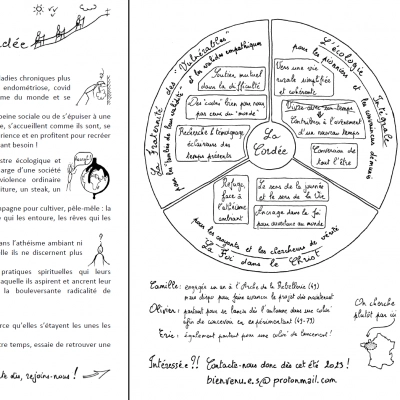 rdée
ladies chroniques plus
endométriose, covid
me du monde et se
peine sociale ou de s'épuiser à une
, s'accueillent comme ils sont, se
érience et en profitent pour recréer
ant besoin !
stre écologique et
arge d'une société
violence ordinaire
iture, un steak, un
mpagne pour cultiver, pêle-mêle : la
e qui les entoure, les rêves qui les
ans l'athéisme ambiant ni
elle ils ne discernent plus
pratiques spirituelles qui leurs
aquelle ils aspirent et ancrent leur
la bouleversante radicalité de
rce qu'elles s'étayent les unes les
tre temps, essaie de retrouver une
rejoins-nous !
La Fraternité des "Vulnérables"
et les valides empathiques
Soutien mutuel
dans la difficulté
Des coins bien pour nous
par ceux du "monde"
Recherche & témoignage
éclairaire des
temps présents
L'écologie Intégrale
pour les pionniers et
Vers une vie
rurale simplifiée
et cohérente
Vivre avec son temps
Contribution à l'avènement
d'un nouveau temps
Conversion de
tout l'être
La
Cordée
Refuge,
face à
l'athéisme
ambiant
Le sens de la journée
et le sens de la Vie
Ancrage dans la foi
pour
au monde
pour les croyants et les chercheurs de vérité
La Foi dans le Christ
Camille : engagée un an à l'Arche de la Rebellerie (49)
mais dispo pour faire avancer le projet dès maintenant
Olivier : partant pour se lancer dès l'automne dans une coloc'
afin de concevoir en expérimentant (49-79)
Eric : également partant pour une coloc' de lancement !
On cherche
plutôt par ici
Intéressé.e ?! Contacte-nous donc dès cet été 2023 !
bienvenu.e.s@protonmail.com